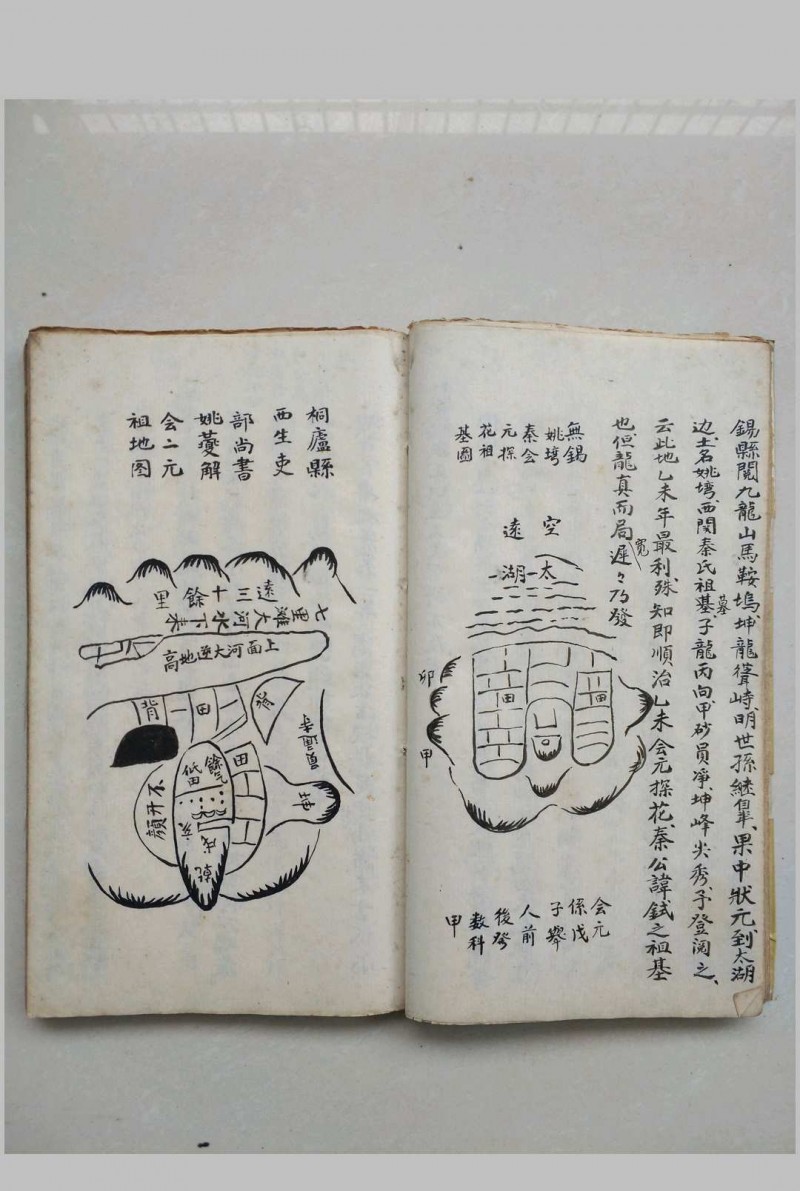 錫縣閱九龍山馬鞍塢坤龍聳峙明世孫継臯果中狀元到太湖
边土名姚塆西関秦氏祖墓子龍丙向甲砂員凈坤峰尖秀予登閱之
云此地乙未年最利殊知即順治乙未会元探花秦公諱鉽之祖基
也但龍真而局寬遲々乃發
無錫
姚塆
秦会
元探
花祖
基圖
空
遠
太湖
田
田
卯
甲
会元
係戊
子舉
人前
後發
数科
甲
桐廬縣
西生吏
部尚書
姚夔解
会二元
祖地图
遠三十餘里
七里灘大河水下来
上面河大遮地高
田
背
田
餘氣
低田
不開顏
坤
戌
亥
乾